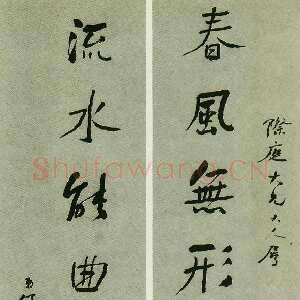 際庭大兄大人属
春風無形
流水能曲
Shufawang.CN